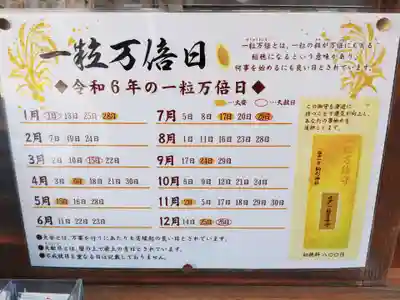 一粒万倍日
一粒万倍とは、一粒の籾が万倍にもなる
稲穂になるという意味があり、
何事を始めるにも良い日とされています。
◆令和6年の一粒万倍日◆
…大安 …天赦日
1月 16日 25日 28日
2月 7日 19日 24日
3月 15日 22日
4月 18日 21日 30日
5月 15日 16日 28日
6月 11日 22日 23日
7月 5日 8日 17日 20日 29日
8月 1日 11日 16日 23日 28日
9月 17日 24日 29日
10月 6日 9日 12日 21日 24日
11月 2日 5日 17日 18日 29日 30日
12月 14日 25日 26日
この御守を身近に
持つことで運気が向上し、
あなたの事始めを
一粒万倍守
初穂料 八〇〇円
●大安とは、万事を行うにあたり六曜の良い日とされています。
●天赦日とは、暦の上で最上の吉日とされています。
●不成就日と重なる日は記載しておりません。